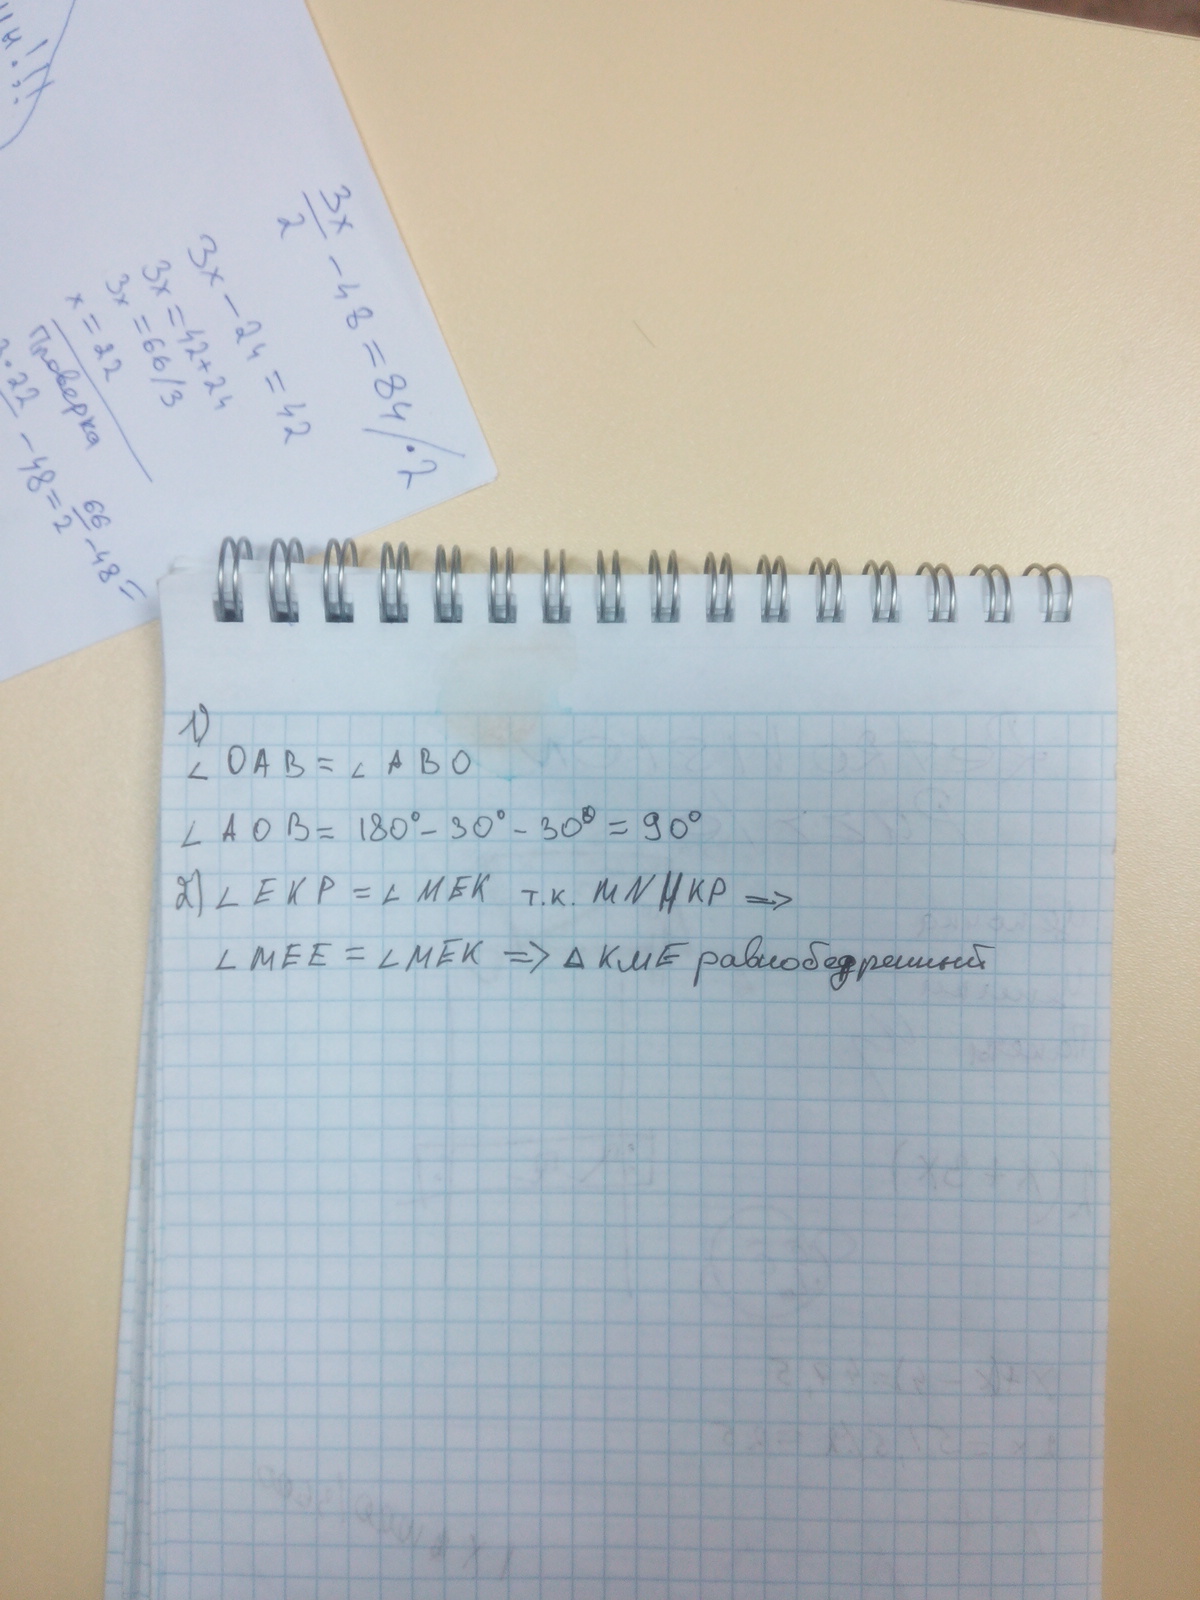 3x/2 - 48 = 84 / · 2
3x - 24 = 42
3x = 42 + 24
3x = 66/3
x = 22
Проверка
22/ - 48 = 66/2 - 48 =
1)
∠ OAB = ∠ ABO
∠ AOB = 180° - 30° - 30° = 90°
2) ∠ EKP = ∠ MEK т.к. MN || KP =>
∠ MEE = ∠ MEK => Δ KME равнобедренный